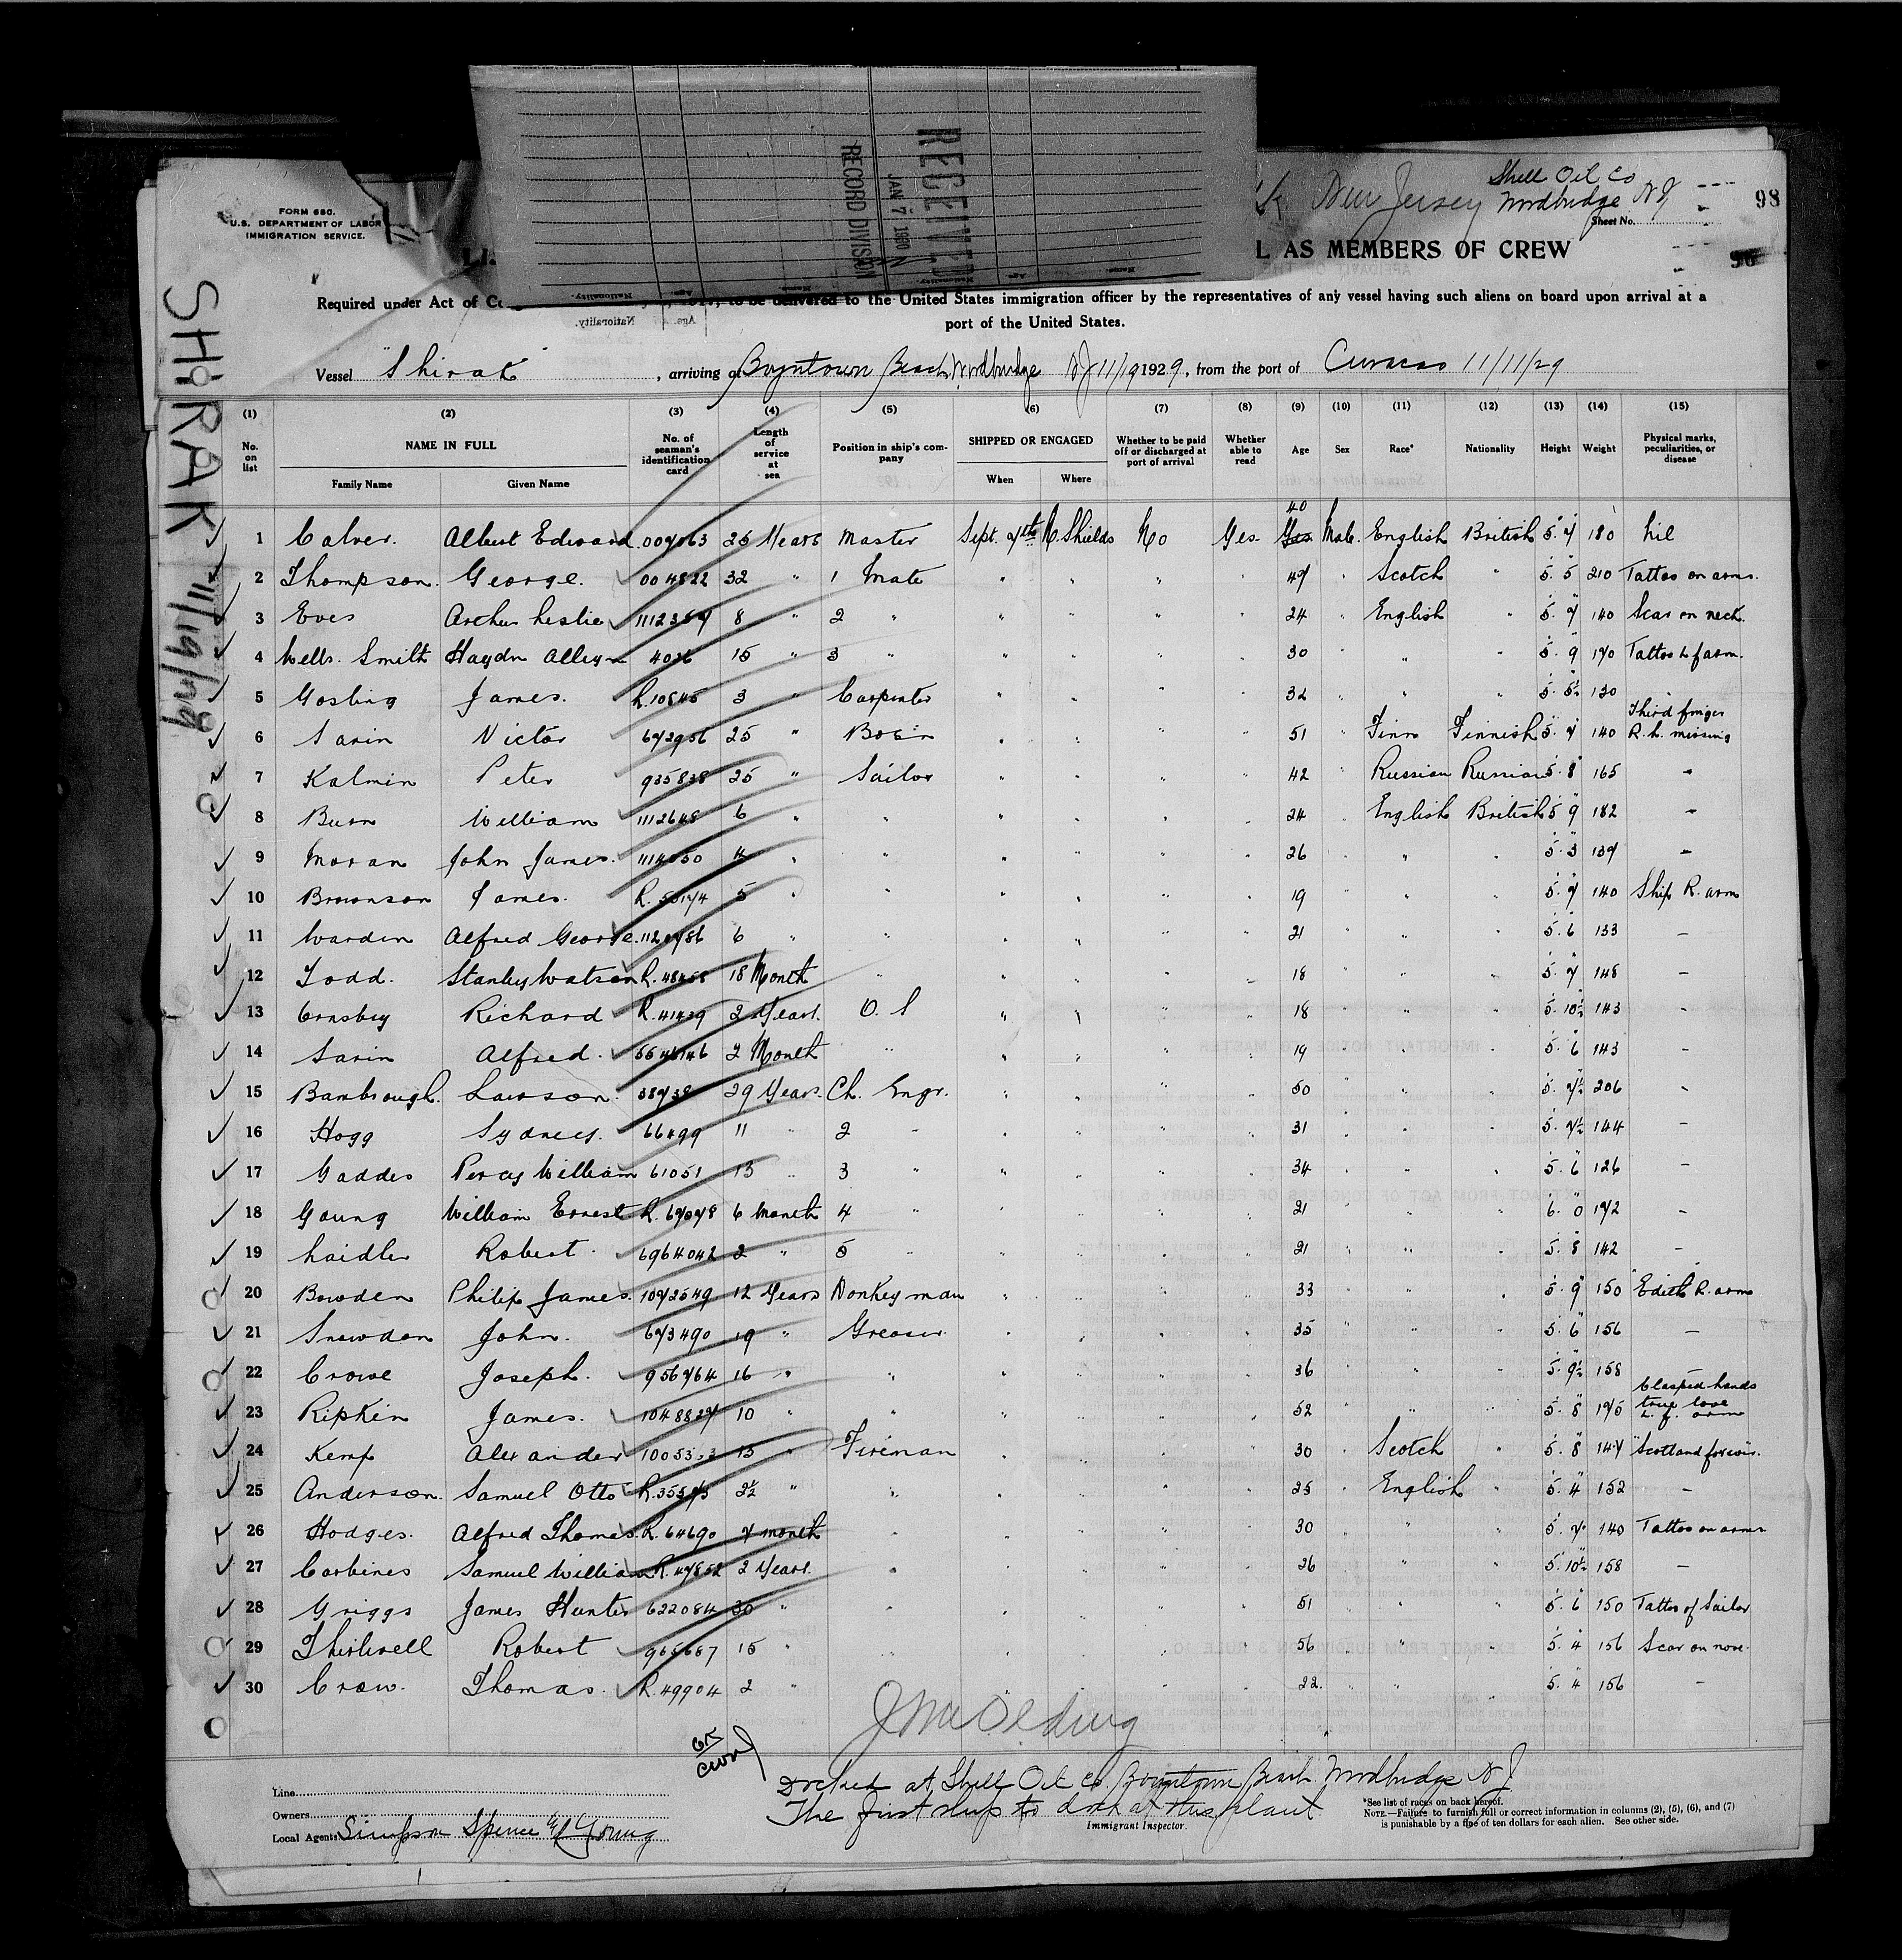 RECEIVED
JAN 7 1930
RECORD DIVISION
Shell Oil Co
New Jersey Woodbridge NJ
98
Sheet No.
FORM 680.
U.S. DEPARTMENT OF LABOR
IMMIGRATION SERVICE.
L AS MEMBERS OF CREW
Required under Act of to be delivered to the United States immigration officer by the representatives of any vessel having such aliens on board upon arrival at a
port of the United States.
Vessel "Shirak", arriving at Boyntown Beach Woodbridge NJ 11/19 1929, from the port of Curacao 11/11/29
SHIRAK 11/19/29
(1) (2) (3) (4) (5) (6) (7) (8) (9) (10) (11) (12) (13) (14) (15)
No. on list NAME IN FULL Family Name Given Name No. of seaman's identification card Length of service at sea Position in ship's company SHIPPED OR ENGAGED When Where Whether to be paid off or discharged at port of arrival Whether able to read Age Sex Race* Nationality Height Weight Physical marks, peculiarities, or disease
1 Calver. Albert Edward 25 Years Master Sept. N. Shields No Yes 40 Male English British 5. 7 180 Nil
2 Thompson. George. 004822 32 " 1 Mate " " " " 47 " Scotch " 5. 5 210 Tattoo on arms.
3 Eves Leslie 8 " 2 " " " " " 24 " English " 5. 7 140 Scar on neck.
4 Wells. Smith Haydn 15 " 3 " " " " " 30 " " " 5. 9 170 Tattoo L f arm.
5 Gosling James. R.10845 3 " Carpenter " " " " 32 " " " 5. 5½ 130
6 Sarin Victor 25 " Bosin " " " " 51 " Finn Finnish 5. 7 140 Third finger R. h. missing
7 Kalmin Peter 935838 25 " Sailor " " " " 42 " Russian Russian 5. 8 165 -
8 Burn William 1112648 6 " " " " " " 24 " English British 5 9 182 -
9 Moran John James. 4 " " " " " " 26 " " " 5. 3 139 -
10 Brownson James. 5 " " " " " " 19 " " " 5. 7 140 Ship R. arm
11 Warden Alfred George. 6 " " " " " " 21 " " " 5. 6 133 -
12 Todd. Stanley Watson 18 Month " " " " " 18 " " " 5. 7 148 -
13 Ornsby Richard R.41439 2 Years. O. S " " " " 18 " " " 5. 10½ 143 -
14 Sarin Alfred. 2 Month " " " " " 19 " " " 5. 6 143 -
15 Bambrough. Lawson. 29 Years. Ch. Engr. " " " " 50 " " " 5. 7½ 206 -
16 Hogg Sydney. 66499 11 " 2 " " " " " 31 " " " 5. 7½ 144 -
17 Gaddes Percy William 61051 13 " 3 " " " " " 34 " " " 5. 6 126 -
18 Young William Ernest 6 month 4 " " " " " 21 " " " 6. 0 172 -
19 Laidler Robert. 6964042 2 " 5 " " " " " 21 " " " 5. 8 142 -
20 Bowden Philip James. 1072549 12 Years Donkeyman " " " " 33 " " " 5. 9 150 "Edith R. arm
21 Snowdon John. 673490 19 " Greaser " " " " 35 " " " 5. 6 156 -
22 Crowe Joseph. 956764 16 " " " " " " 36 " " " 5. 9½ 158 -
23 Ripkin James. 1048827 10 " " " " " " 52 " " " 5. 8 175 Clasped hands true love L. f. arm
24 Kemp Alexander 13 " Fireman " " " " 30 " Scotch " 5. 8 147 "Scotland
25 Anderson. Samuel Otto 2½ " " " " " " 25 " English " 5. 4 132 -
26 Hodges. Alfred Thomas. R. 64690 7 month " " " " " 30 " " " 5. 7 140 Tattoo on arms
27 Corbines Samuel William R.47852 2 Years. " " " " " 26 " " " 5. 10½ 158 -
28 Griggs James Hunter 622084 30 " " " " " " 51 " " " 5. 6 150 Tattoo of Sailor
29 Thirlwell Robert 965687 15 " " " " " " 56 " " " 5. 4 156 Scar on nose.
30 Crow. Thomas. R.49904 2 " " " " " " 22. " " " 5. 4 156 -
Docked at Shell Oil Co. Boyntown Beach Woodbridge NJ
The first ship to dock at this plant
Immigrant Inspector.
Line
Owners
Local Agents Simpson Spence & Young
*See list of races on back hereof.
NOTE.—Failure to furnish full or correct information in columns (2), (5), (6), and (7)
is punishable by a fine of ten dollars for each alien. See other side.